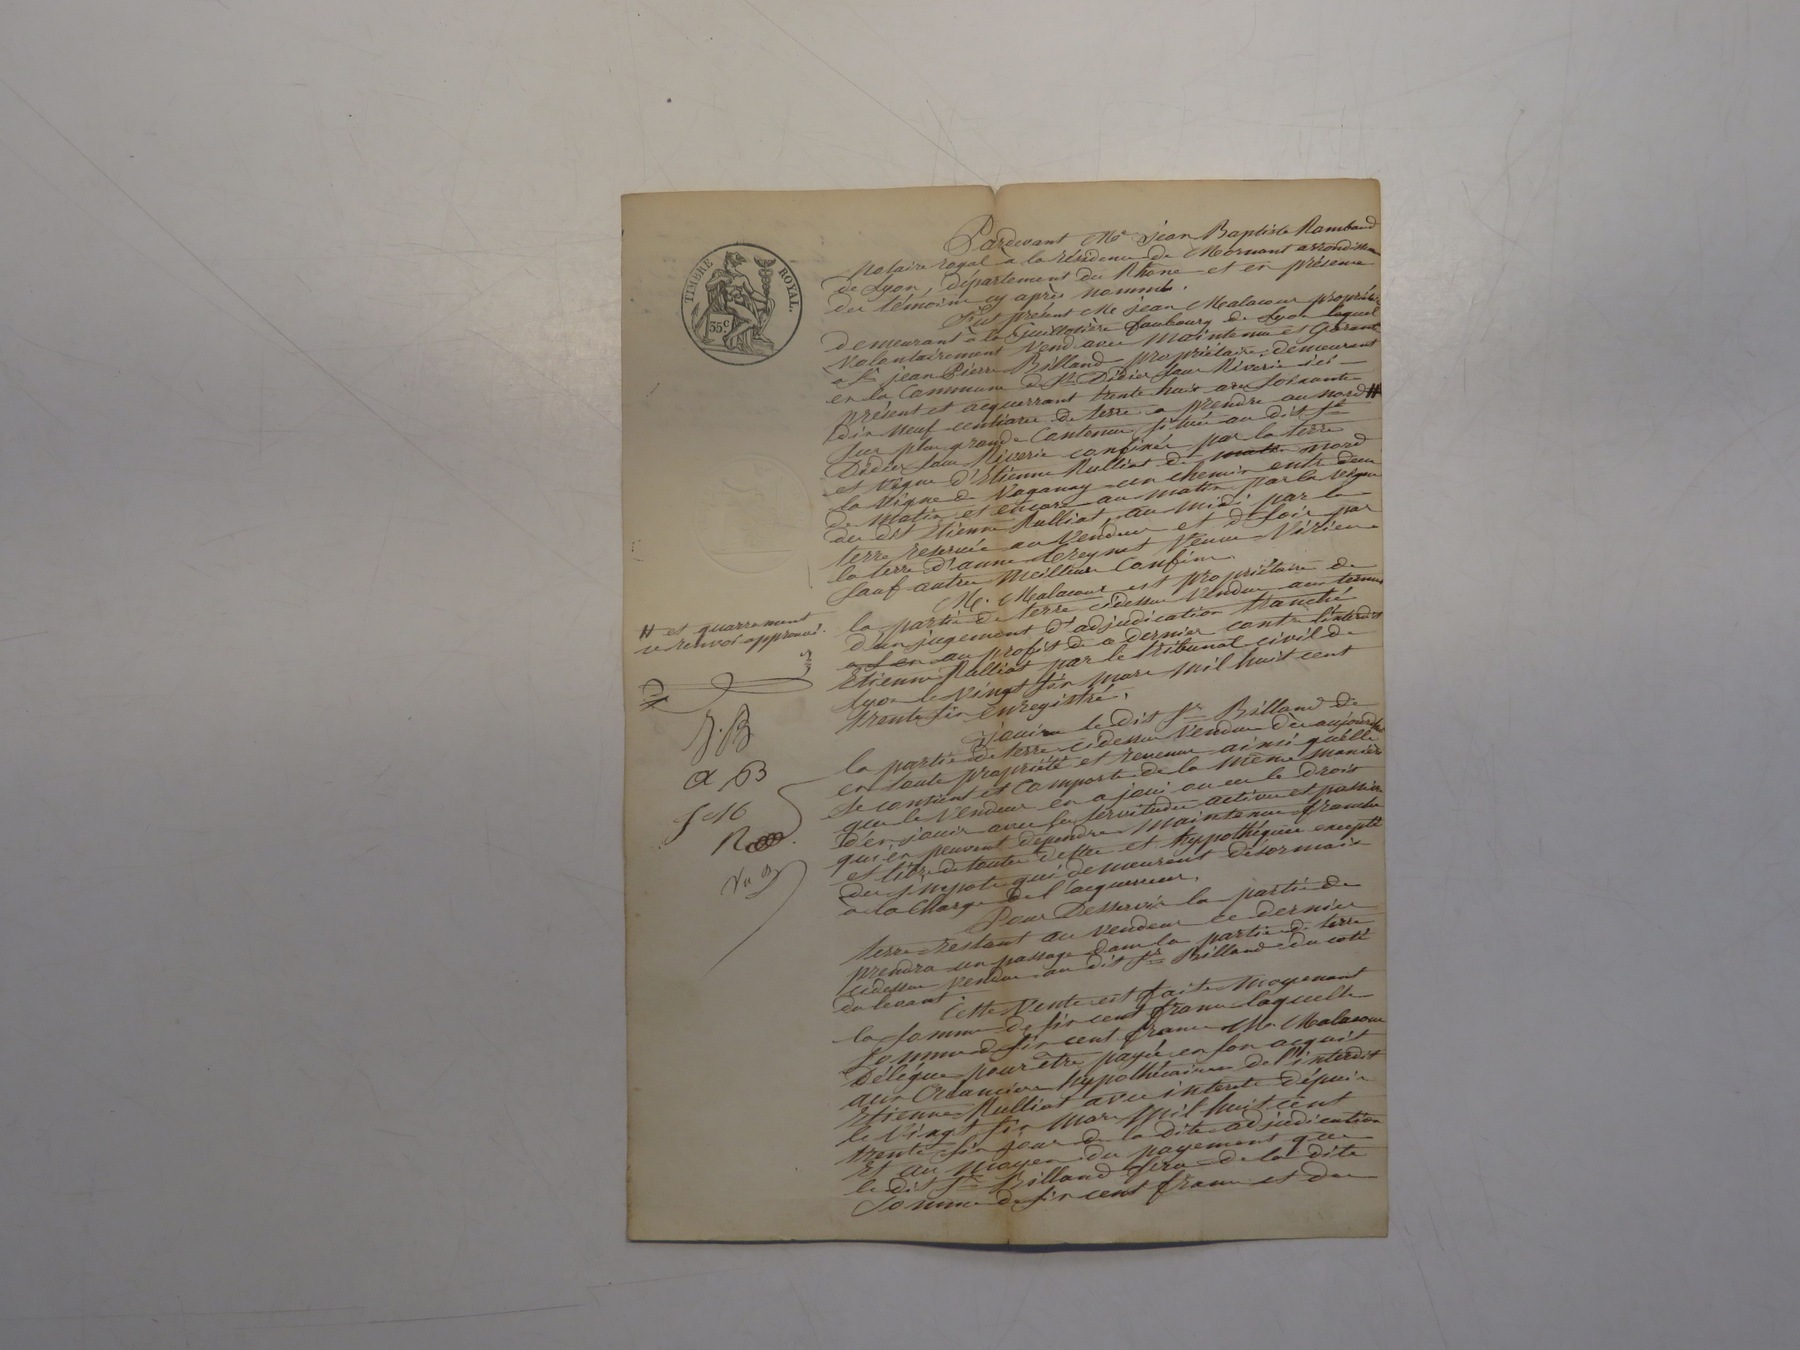 TIMBRE ROYAL.
35c
Pardevant Me Jean Baptiste Rambaud
notaire royal à la résidence de Mornant arrondissem
de Lyon, département du Rhône et en présence
des témoins cy après nommés.
Fut présent Mr jean Malacour propriétre
demeurant à la Guillotière faubourg de Lyon lequel
volontairement vend avec maintenue et Garant
a Sr jean Pierre Billand propriétaire demeurant
en la Commune de St Didier sous Riverie ici
présent et acquerrant trente huit ares soixante
dix neuf centiares de terre a prendre au nord #
sur plus grande Contenue située au dit St
Didier sous Riverie confinée par la terre
et vigne d'Etienne Rulliat de matin nord
la vigne de Vaganay un chemin entre deux
de matin et encore au matin par la vigne
du dit Etienne Rulliat, au midi par la
terre reservée au vendeur et de soir par
la terre d'anne Creynet Veuve Vérieux
sauf autres meilleurs Confins.
M. Malacour est propriétaire de
la partie de terre cidessus vendue aux termes
d'un jugement d'adjudication tranché
a son au profit de ce dernier contre l'interdit
Etienne Rulliat par le tribunal civil de
Lyon le vingt six mars mil huit cent
trente six enregistré.
Jouira le dit Sr Billand de
la partie de terre cidessus vendue dès aujourdhui
en toute propriété et revenus ainsi qu'elle
se contient et Comporte de la même manière
que le vendeur en a joui ou eu le droit
d'en jouir avec ses servitudes actives et passives
qui en peuvent dépendre maintenue franche
et libre de toutes dettes et hypothéques excepté
des impots qui demeurent désormais
a la Charge de l'acquereur.
Pour Desservir la partie de
terre restant au vendeur ce dernier
prendra un passage dans la partie de terre
cidessus vendue au dit Sr Billand du coté
du levant.
Cette vente est faite moyenant
la somme de six cent francs laquelle
somme de six cent francs Mr Malacour
Délégue pour être payée en son acquit
aux Créanciers hypothécaires de l'interdit
Etienne Rulliat avec interets dépuis
le vingt six mars mil huit cent
trente six jour de la dite adjudication
Et au moyen du payement que
le dit Sr Billand fera de la dite
Somme de six cent francs et des
# et quarrement
ce renvoi approuvé.
J. B
a B
J M
R